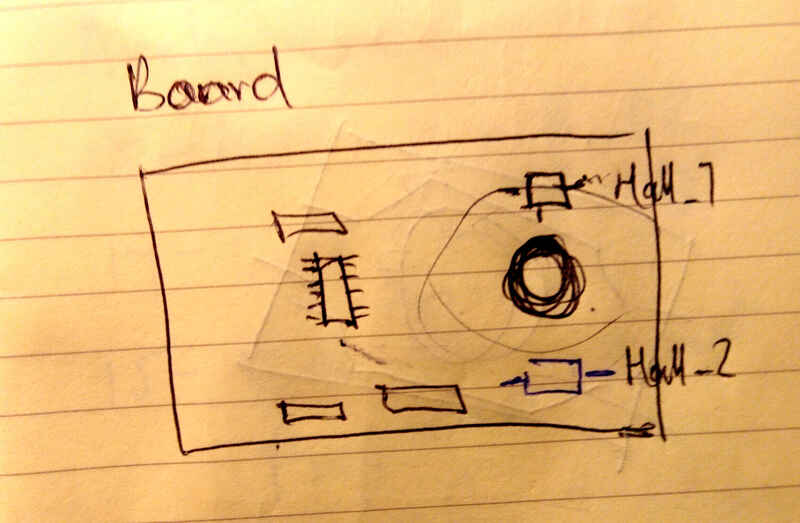 Board
Hall_1
Hall_2